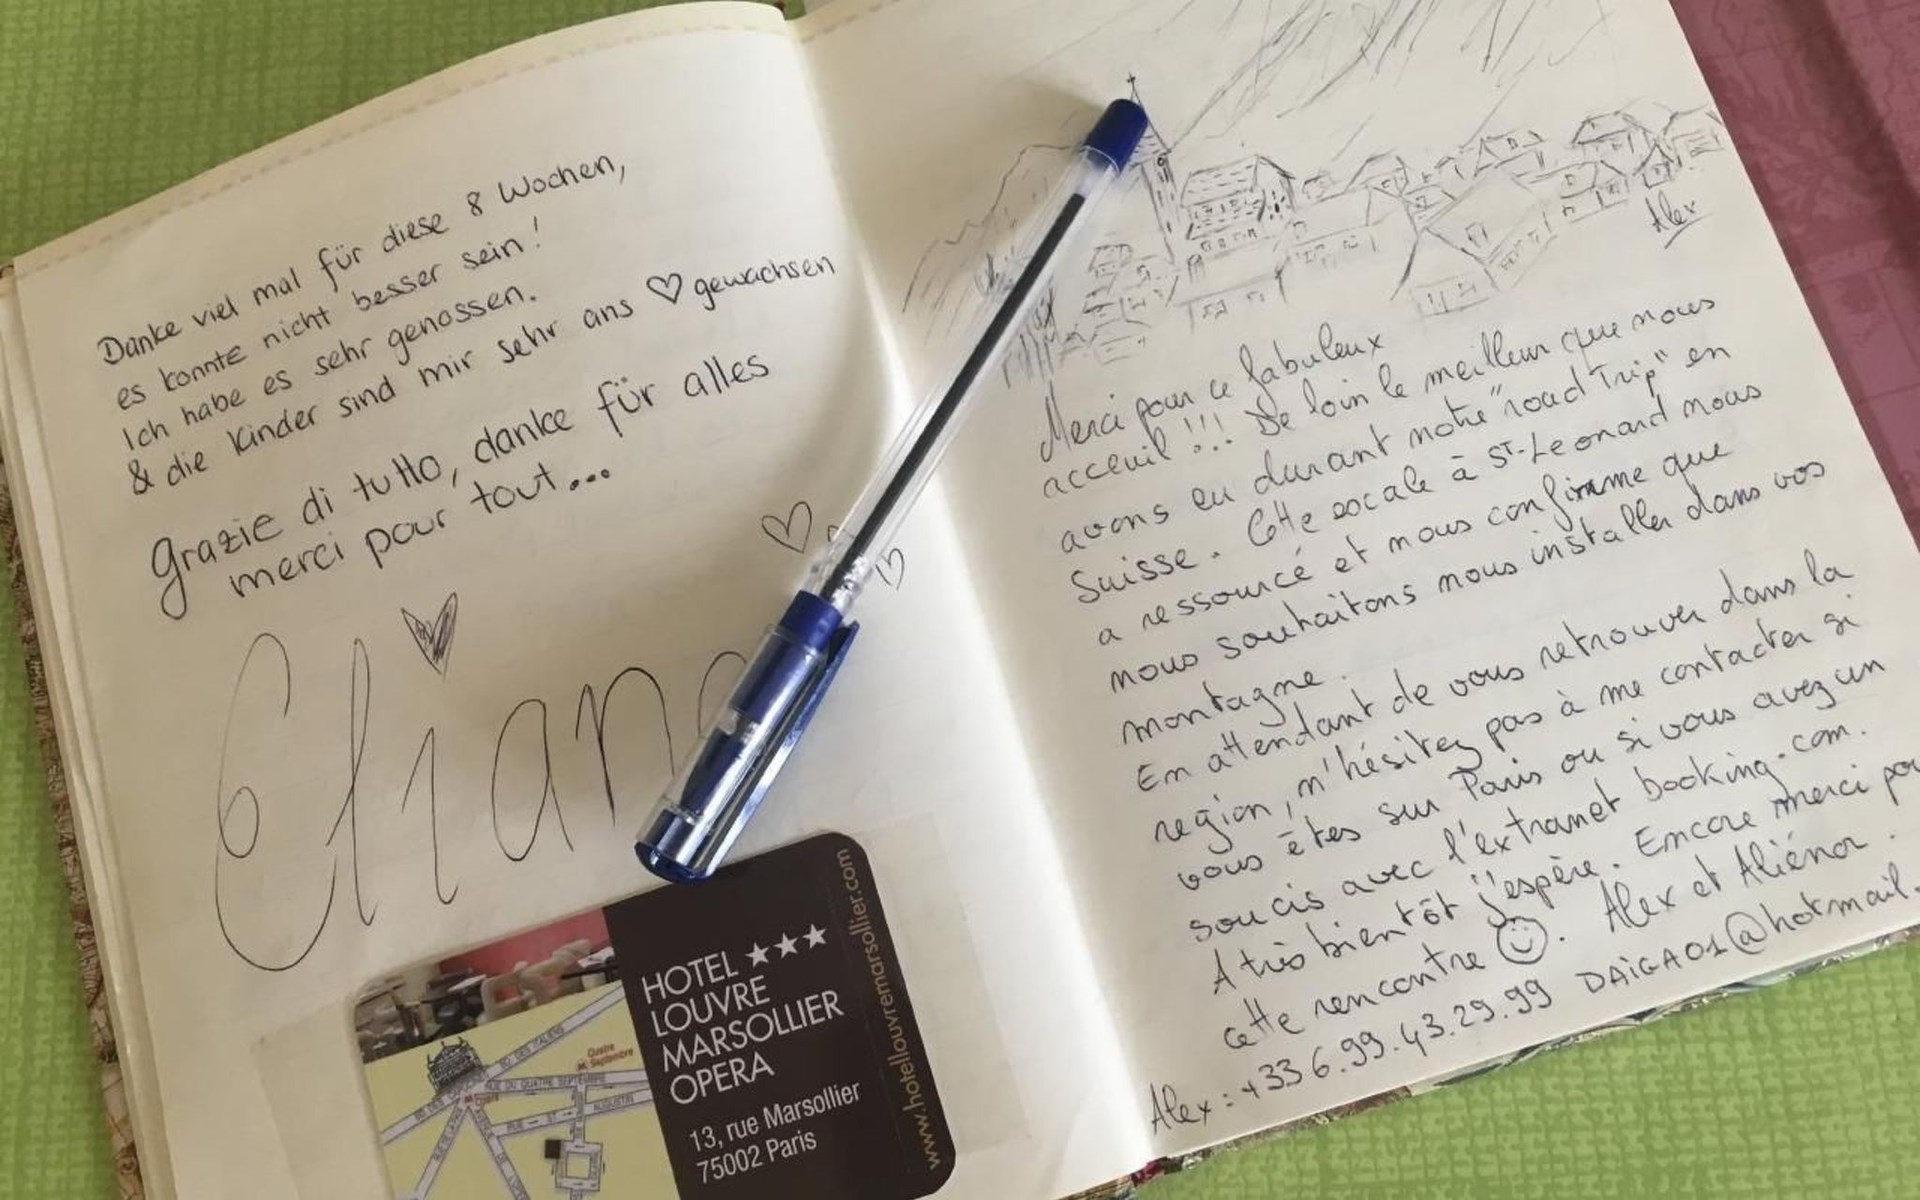 Danke viel mal für diese 8 Wochen,
es konnte nicht besser sein!
Ich habe es sehr genossen.
& die Kinder sind mir sehr ans ♡ gewachsen
Grazie di tutto, danke für alles
merci pour tout...
Elian
HOTEL ★★★
LOUVRE
MARSOLLIER
OPERA
13, rue Marsollier
75002 Paris
www.hotellouvremarsollier.com
Quatre
Septembre
BD DES ITALIENS
RUE DU QUATRE SEPTEMBRE
RUE ST AUGUSTIN
Alex
Merci pour ce fabuleux
acceuil !!! De loin le meilleur que nous
avons eu durant notre "road Trip" en
Suisse. Cette escale à St-Leonard nous
a ressourcé et nous confirme que
nous souhaitons nous installer dans vos
montagne.
En attendant de vous retrouver dans la
region, n'hésitez pas à me contacter si
vous êtes sur Paris ou si vous avez un
soucis avec l'extranet booking.com.
A très bientôt j'espère. Encore merci pou
cette rencontre ☺. Alex et Aliénor.
Alex: +33 6.99.43.29.99 DAIGA01@hotmail.